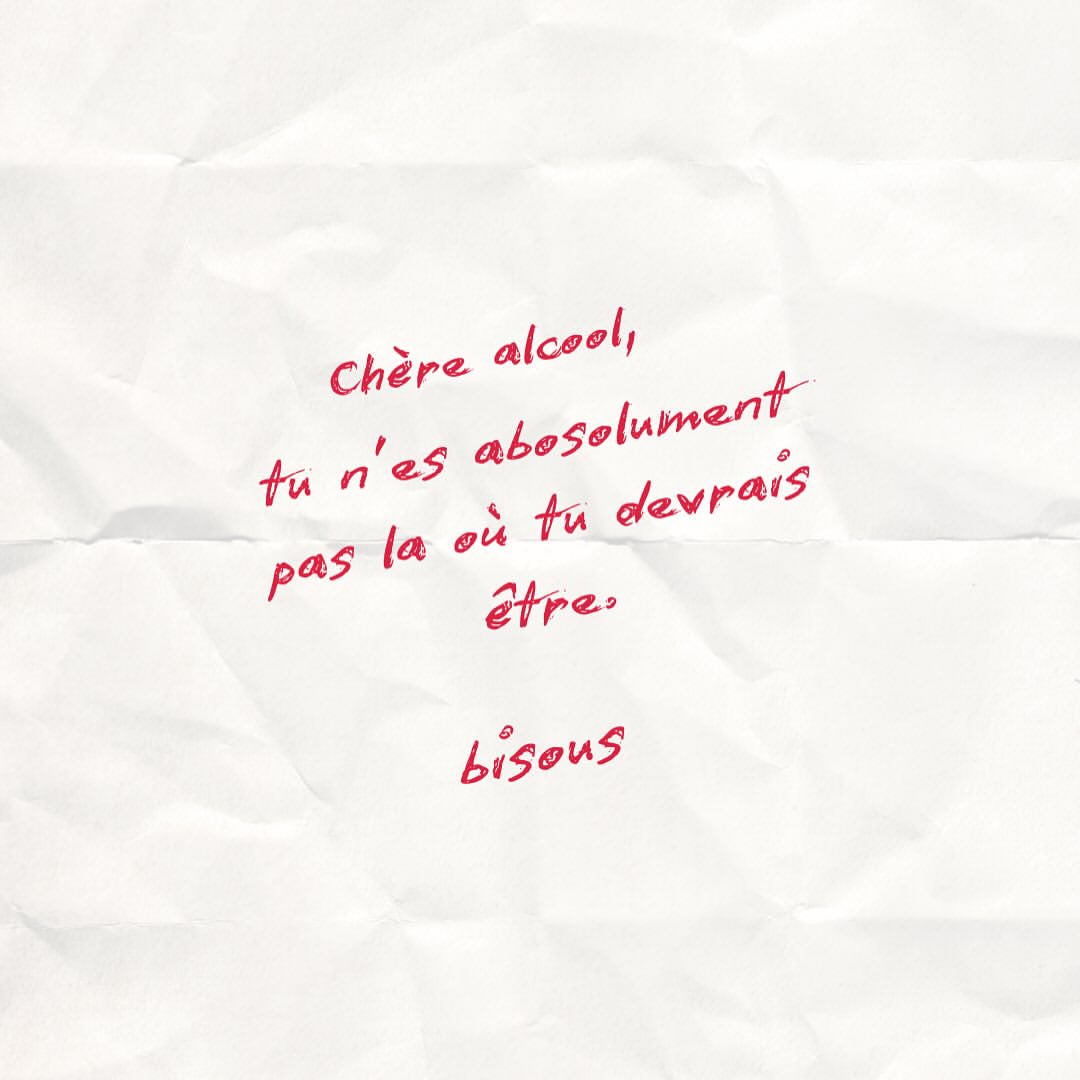 Chère alcool,
tu n'es abosolument
pas la où tu devrais
être.
bisous